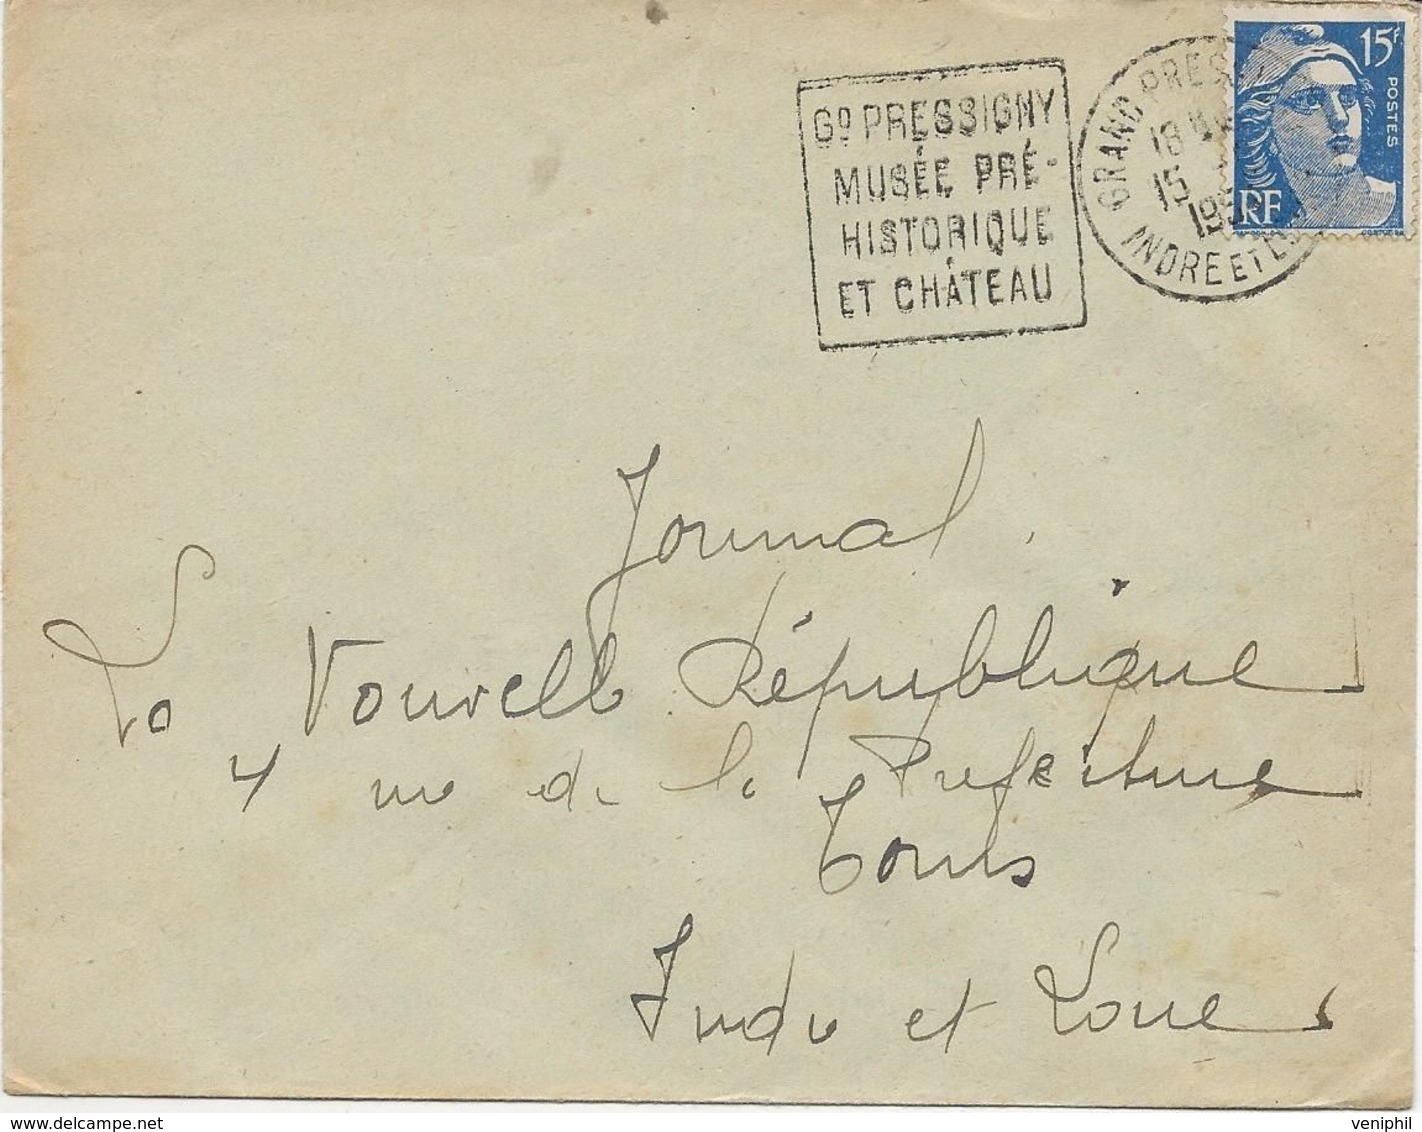 Gᴰ PRESSIGNY
MUSÉE PRÉ-
HISTORIQUE
ET CHÂTEAU
GRAND PRES
18
15
195
INDRE ET L
15F
POSTES
RF
Journal
La Nouvelle République
4 rue de la Préfecture
Tours
Indre et Loire
veniphil